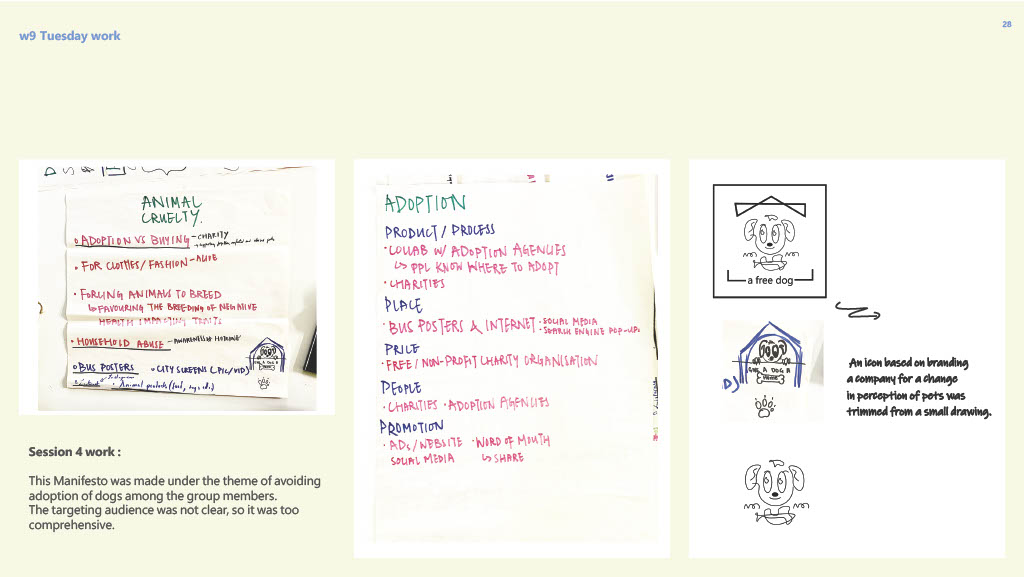 w9 Tuesday work
28
ANIMAL
CRUELTY.
ADOPTION VS BUYING - CHARITY
FOR CLOTHES/FASHION - ALIVE
FORCING ANIMALS TO BREED
↳ FAVOURING THE BREEDING OF NEGATIVE
HEALTH IMPACTING TRAITS
HOUSEHOLD ABUSE -
BUS POSTERS
• CITY SCREENS (PIC/VID)
Session 4 work :
This Manifesto was made under the theme of avoiding
adoption of dogs among the group members.
The targeting audience was not clear, so it was too
comprehensive.
ADOPTION
PRODUCT / PROCESS
• COLLAB W/ ADOPTION AGENCIES
↳ PPL KNOW WHERE TO ADOPT
• CHARITIES
PLACE
• BUS POSTERS & INTERNET • SOCIAL MEDIA
SEARCH ENGINE POP-UPS
PRICE
• FREE / NON-PROFIT CHARITY ORGANISATION
PEOPLE
• CHARITIES • ADOPTION AGENCIES
PROMOTION
• ADs / WEBSITE • WORD OF MOUTH
SOCIAL MEDIA ↳ SHARE
a free dog
GIVE A DOG A
HOME
An icon based on branding
a company for a change
in perception of pets was
trimmed from a small drawing.